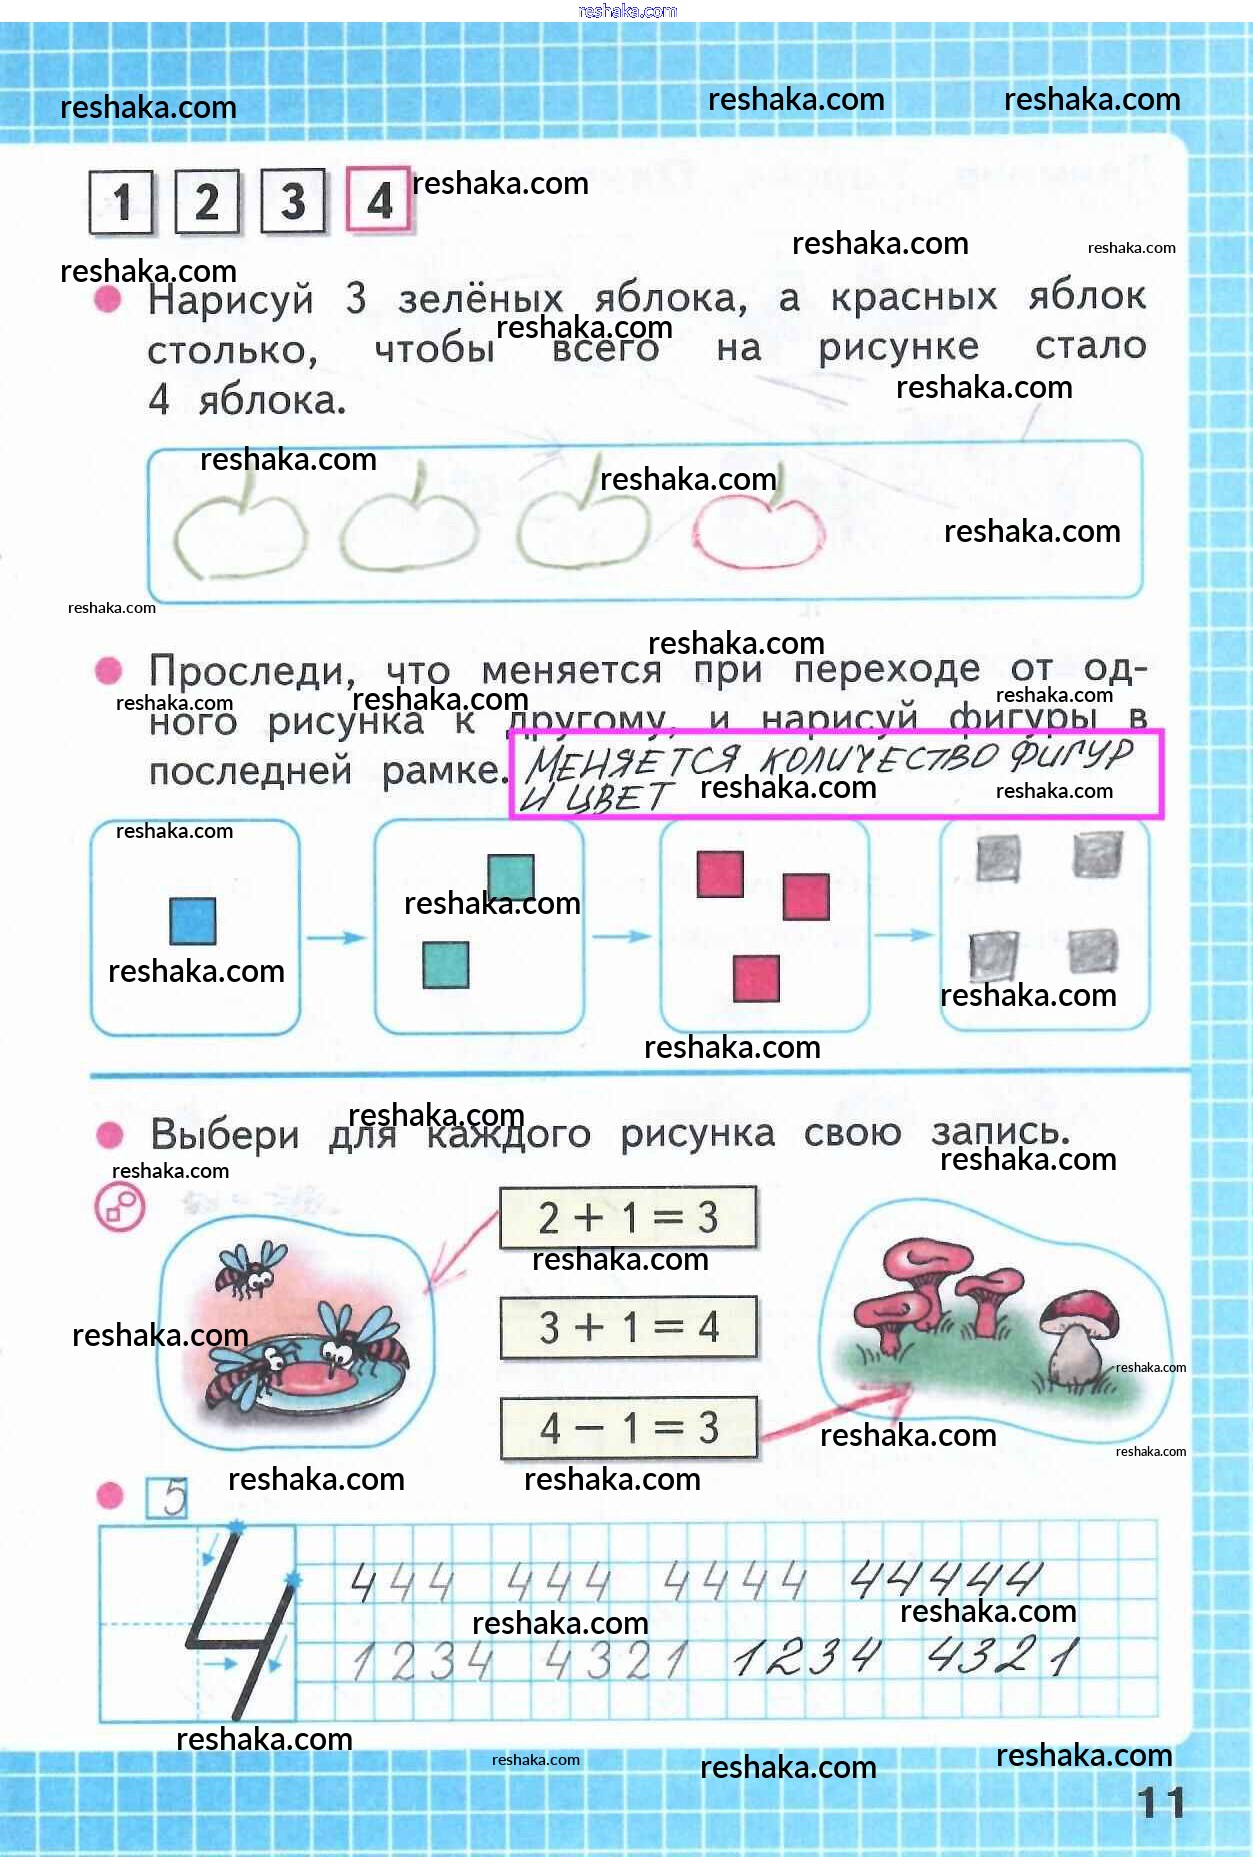 reshaka.com
reshaka.com reshaka.com reshaka.com
1 2 3 4 reshaka.com
reshaka.com reshaka.com
reshaka.com
Нарисуй 3 зелёных яблока, а красных яблок
reshaka.com
столько, чтобы всего на рисунке стало
reshaka.com
4 яблока.
reshaka.com
reshaka.com
reshaka.com
reshaka.com
reshaka.com
Проследи, что меняется при переходе от од-
reshaka.com reshaka.com reshaka.com
ного рисунка к другому, и нарисуй фигуры в
последней рамке.
МЕНЯЕТСЯ КОЛИЧЕСТВО ФИГУР
И ЦВЕТ
reshaka.com reshaka.com
reshaka.com
reshaka.com
reshaka.com
reshaka.com
reshaka.com
reshaka.com
Выбери для каждого рисунка свою запись.
reshaka.com
reshaka.com
2 + 1 = 3
reshaka.com
3 + 1 = 4
reshaka.com
reshaka.com
4 − 1 = 3
reshaka.com
reshaka.com
reshaka.com reshaka.com
5
4
4 4 4 4 4 4 4 4 4 4 4 4 4 4 4
reshaka.com reshaka.com
1 2 3 4 4 3 2 1 1 2 3 4 4 3 2 1
reshaka.com reshaka.com reshaka.com reshaka.com
11